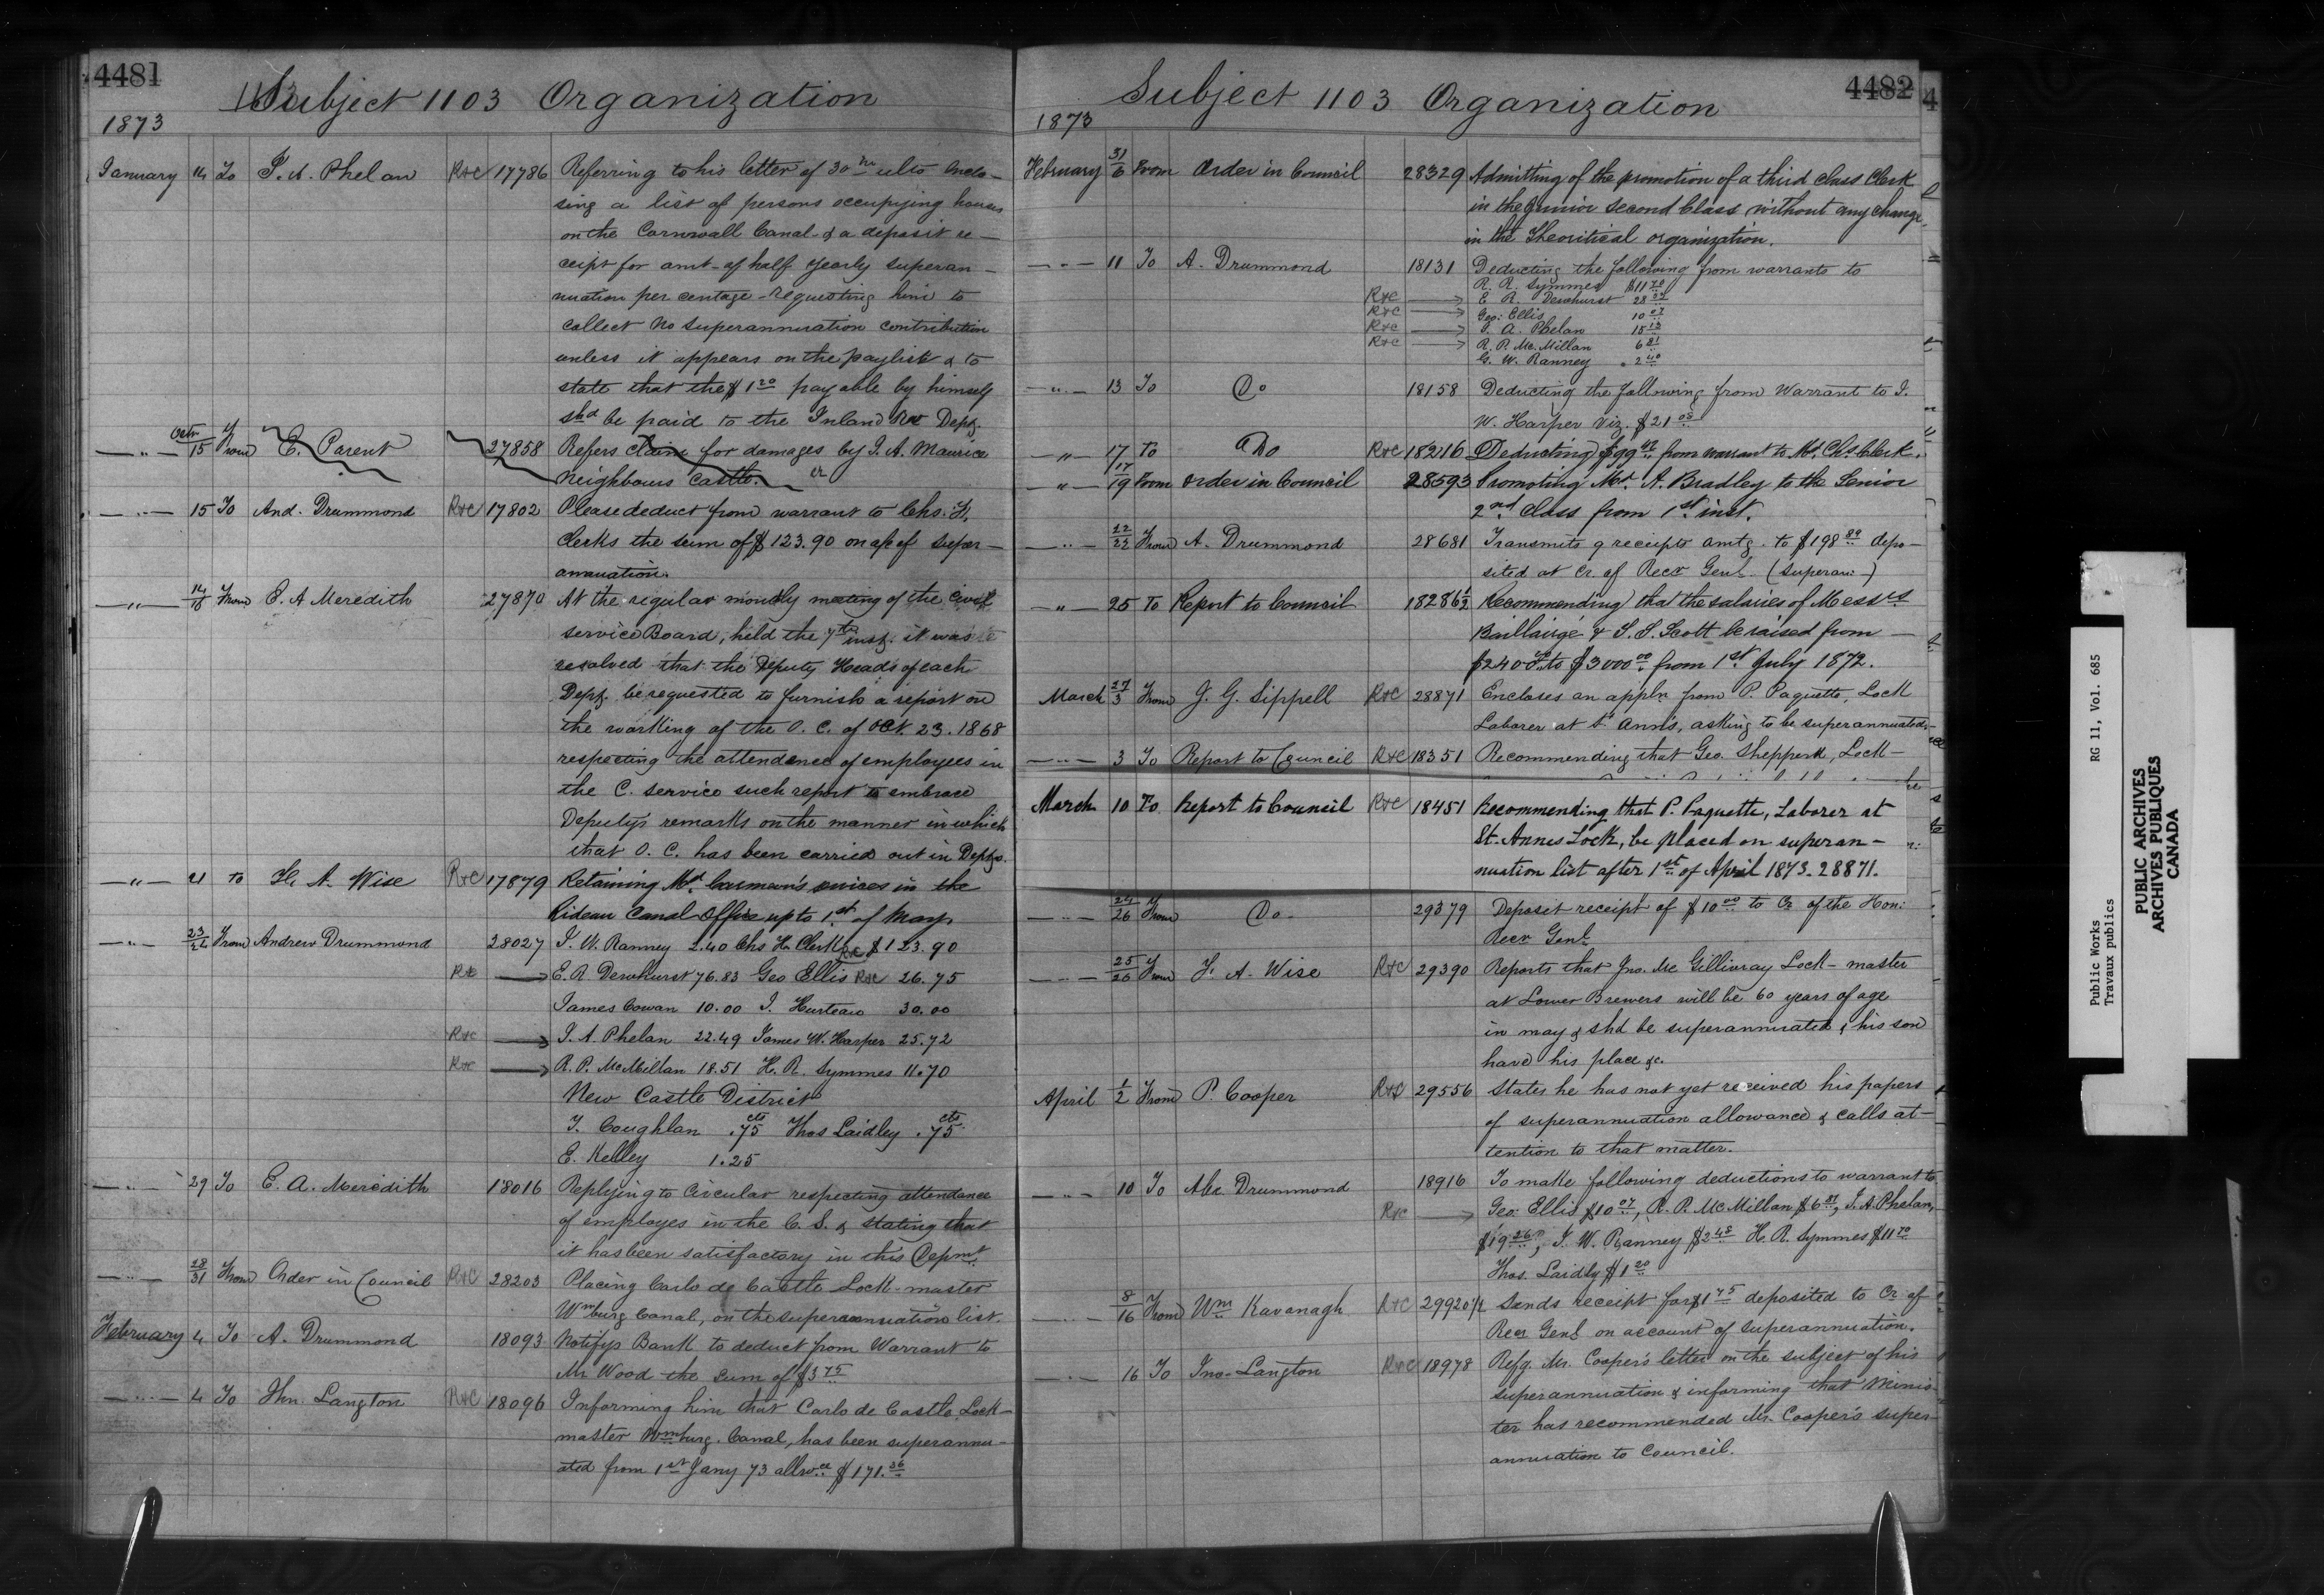 4481
Subject 1103 Organization
1873
January 14 To T. A. Phelan R&C 17786 Referring to his letter of 30th ulto enclo-
sing a list of persons occupying houses
on the Cornwall Canal & a deposit re-
ceipt for amt of half yearly superan-
nuation per centage - requesting him to
collect no superannuation contribution
unless it appears on the paylist & to
state that the $1 20 payable by himself
shd be paid to the Inland Rev Dept.
15 From E. Parent 27858 Refers claim for damages by J. A. Maurice
Neighbours Castle.
15 To And. Drummond R&C 17802 Please deduct from warrant to Chs. H.
Clerks the sum of $123.90 on a/c of super-
annuation.
14/16 From E. A Meredith 27870 At the regular monthly meeting of the Civil
service Board, held the 7th inst. it was
resolved that the Deputy Heads of each
Dept. be requested to furnish a report on
the working of the O. C. of Oct. 23. 1868
respecting the attendance of employees in
the C. service such report to embrace
Deputy's remarks on the manner in which
that O. C. has been carried out in Depts.
—"— 21 to H. A. Wise R&C 17879 Retaining Mr. Carman's services in the
Rideau Canal Office up to 1st of May.
23/24 From Andrew Drummond 28027 J. W. Ranney 2.40 Chs H. Clerk R&C $123.90
R&C → E. R. Dewhurst 76.83 Geo Ellis R&C 26.75
James Cowan 10.00 J. Hurteau 30.00
R&C → J. A. Phelan 22.49 James W. Harper 25.72
R&C → R. P. McMillan 18.51 H. R. Symmes 11.70
New Castle District
T. Coughlan .75 cts Thos Laidley .75 cts
E. Kelley 1.25
—"— 29 To E. A. Meredith 18016 Replying to Circular respecting attendance
of employes in the C. S. & stating that
it has been satisfactory in this Depmt
—"— 28/31 From Order in Council R&C 28203 Placing Carlo de Castle Lock-master
Wmburg Canal, on the superannuation list.
February 4 To A. Drummond 18093 Notifys Bank to deduct from Warrant to
Mr Wood the sum of $3 75
—"— 4 To Jhn. Langton R&C 18096 Informing him that Carlo de Castle Lock-
master Wmburg. Canal, has been superannu-
ated from 1st Jany 73 allwce $171.36
4482
Subject 1103 Organization
1873
February 31/6 From Order in Council 28329 Admitting of the promotion of a third class Clerk
in the Junior Second Class without any change
in the Theoritical organization.
—"— 11 To A. Drummond 18131 Deducting the following from warrants to
R. R. Symmes $11 70
R&C → E. R. Dewhurst 28
R&C → Geo: Ellis 10 07
R&C → J. A. Phelan 15
R&C → R. P. Mc.Millan 6 81
G. W. Ranney 2 40
—"— 13 To Do 18158 Deducting the following from Warrant to J.
W. Harper Viz. $21 05
—"— 17 To Do R&C 18216 Deducting $99 from warrant to Mr. Chs Clerk.
—"— 17/19 From Order in Council 28593 Promoting Mr. A. Bradley to the Senior
2nd Class from 1st inst.
—"— 22/22 From A. Drummond 28681 Transmits 9 receipts amtg. to $198 depo-
sited at Cr. of Recr Genl. (superan:-)
—"— 25 To Report to Council 18286½ Recommending that the salaries of Messrs
Baillairgé & T. S. Scott be raised from
$2400 to $3000 00 from 1st July 1872.
March 27/3 From J. G. Sippell R&C 28871 Encloses an appln from P. Paquette, Lock
Laborer at St Ann's, asking to be superannuated.
—"— 3 To Report to Council R&C 18351 Recommending that Geo. Shepperd, Lock-
March 10 To Report to Council R&C 18451 Recommending that P. Paquette, Laborer at
St. Annes Lock, be placed on superan-
nuation list after 1st of April 1873. 28871.
24/26 From Do 29379 Deposit receipt of $10 00 to Cr of the Hon:
Recr Genl
—"— 25/26 From H. A. Wise R&C 29390 Reports that Jno. Mc Gillivray Lock-master
at Lower Brewers will be 60 years of age
in may & shd be superannuated & his son
have his place &c.
April 1/2 From P. Cooper R&C 29556 States he has not yet received his papers
of superannuation allowance & calls at-
tention to that matter.
—"— 10 To Drummond 18916 To make following deductions to warrant to
R&C → Geo. Ellis $10 07, R. P. McMillan $6 81, J. A. Phelan,
$19 26, J. W. Ranney $2 48 H. R. Symmes $11 70
Thos. Laidly $1 20
—"— 8/16 From Wm Kavanagh R&C 29920½ Sends receipt for $1 75 deposited to Cr of
Recr Genl on account of superannuation.
—"— 16 To Jno-Langton R&C 18978 Refg. Mr. Cooper's letter on the subject of his
superannuation & informing that Minis-
ter has recommended Mr. Cooper's super-
annuation to Council.
Public Works RG 11, Vol. 685
Travaux publics
PUBLIC ARCHIVES
ARCHIVES PUBLIQUES
CANADA